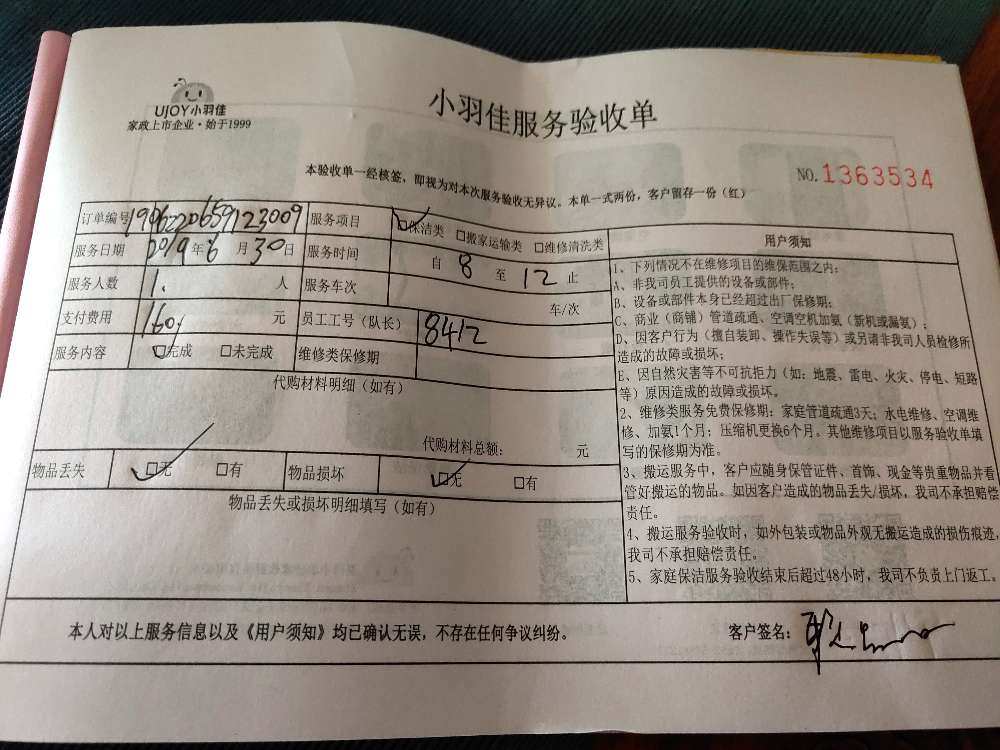 UJOY小羽佳
家政上市企业·始于1999
小羽佳服务验收单
本验收单一经核签，即视为对本次服务验收无异议。本单一式两份，客户留存一份（红）
NO.1363534
订单编号 1906220659123009 服务项目 □保洁类 □搬家运输类 □维修清洗类
服务日期 2019年6月30日 服务时间 自 8 至 12 止
服务人数 1. 人 服务车次 车/次
支付费用 160 元 员工工号（队长） 8412
服务内容 □完成 □未完成 维修类保修期
代购材料明细（如有）
代购材料总额： 元
物品丢失 □无 □有 物品损坏 □无 □有
物品丢失或损坏明细填写（如有）
用户须知
1、下列情况不在维修项目的维保范围之内：
A、非我司员工提供的设备或部件；
B、设备或部件本身已经超过出厂保修期；
C、商业（商铺）管道疏通、空调空机加氨（新机或漏氨）；
D、因客户行为（擅自装卸、操作失误等）或另请非我司人员检修所
造成的故障或损坏；
E、因自然灾害等不可抗拒力（如：地震、雷电、火灾、停电、短路
等）原因造成的故障或损坏。
2、维修类服务免费保修期：家庭管道疏通3天；水电维修、空调维
修、加氨1个月；压缩机更换6个月。其他维修项目以服务验收单填
写的保修期为准。
3、搬运服务中，客户应随身保管证件、首饰、现金等贵重物品并看
管好搬运的物品。如因客户造成的物品丢失/损坏，我司不承担赔偿
责任。
4、搬运服务验收时，如外包装或物品外观无搬运造成的损伤痕迹，
我司不承担赔偿责任。
5、家庭保洁服务验收结束后超过48小时，我司不负责上门返工。
本人对以上服务信息以及《用户须知》均已确认无误，不存在任何争议纠纷。 客户签名：